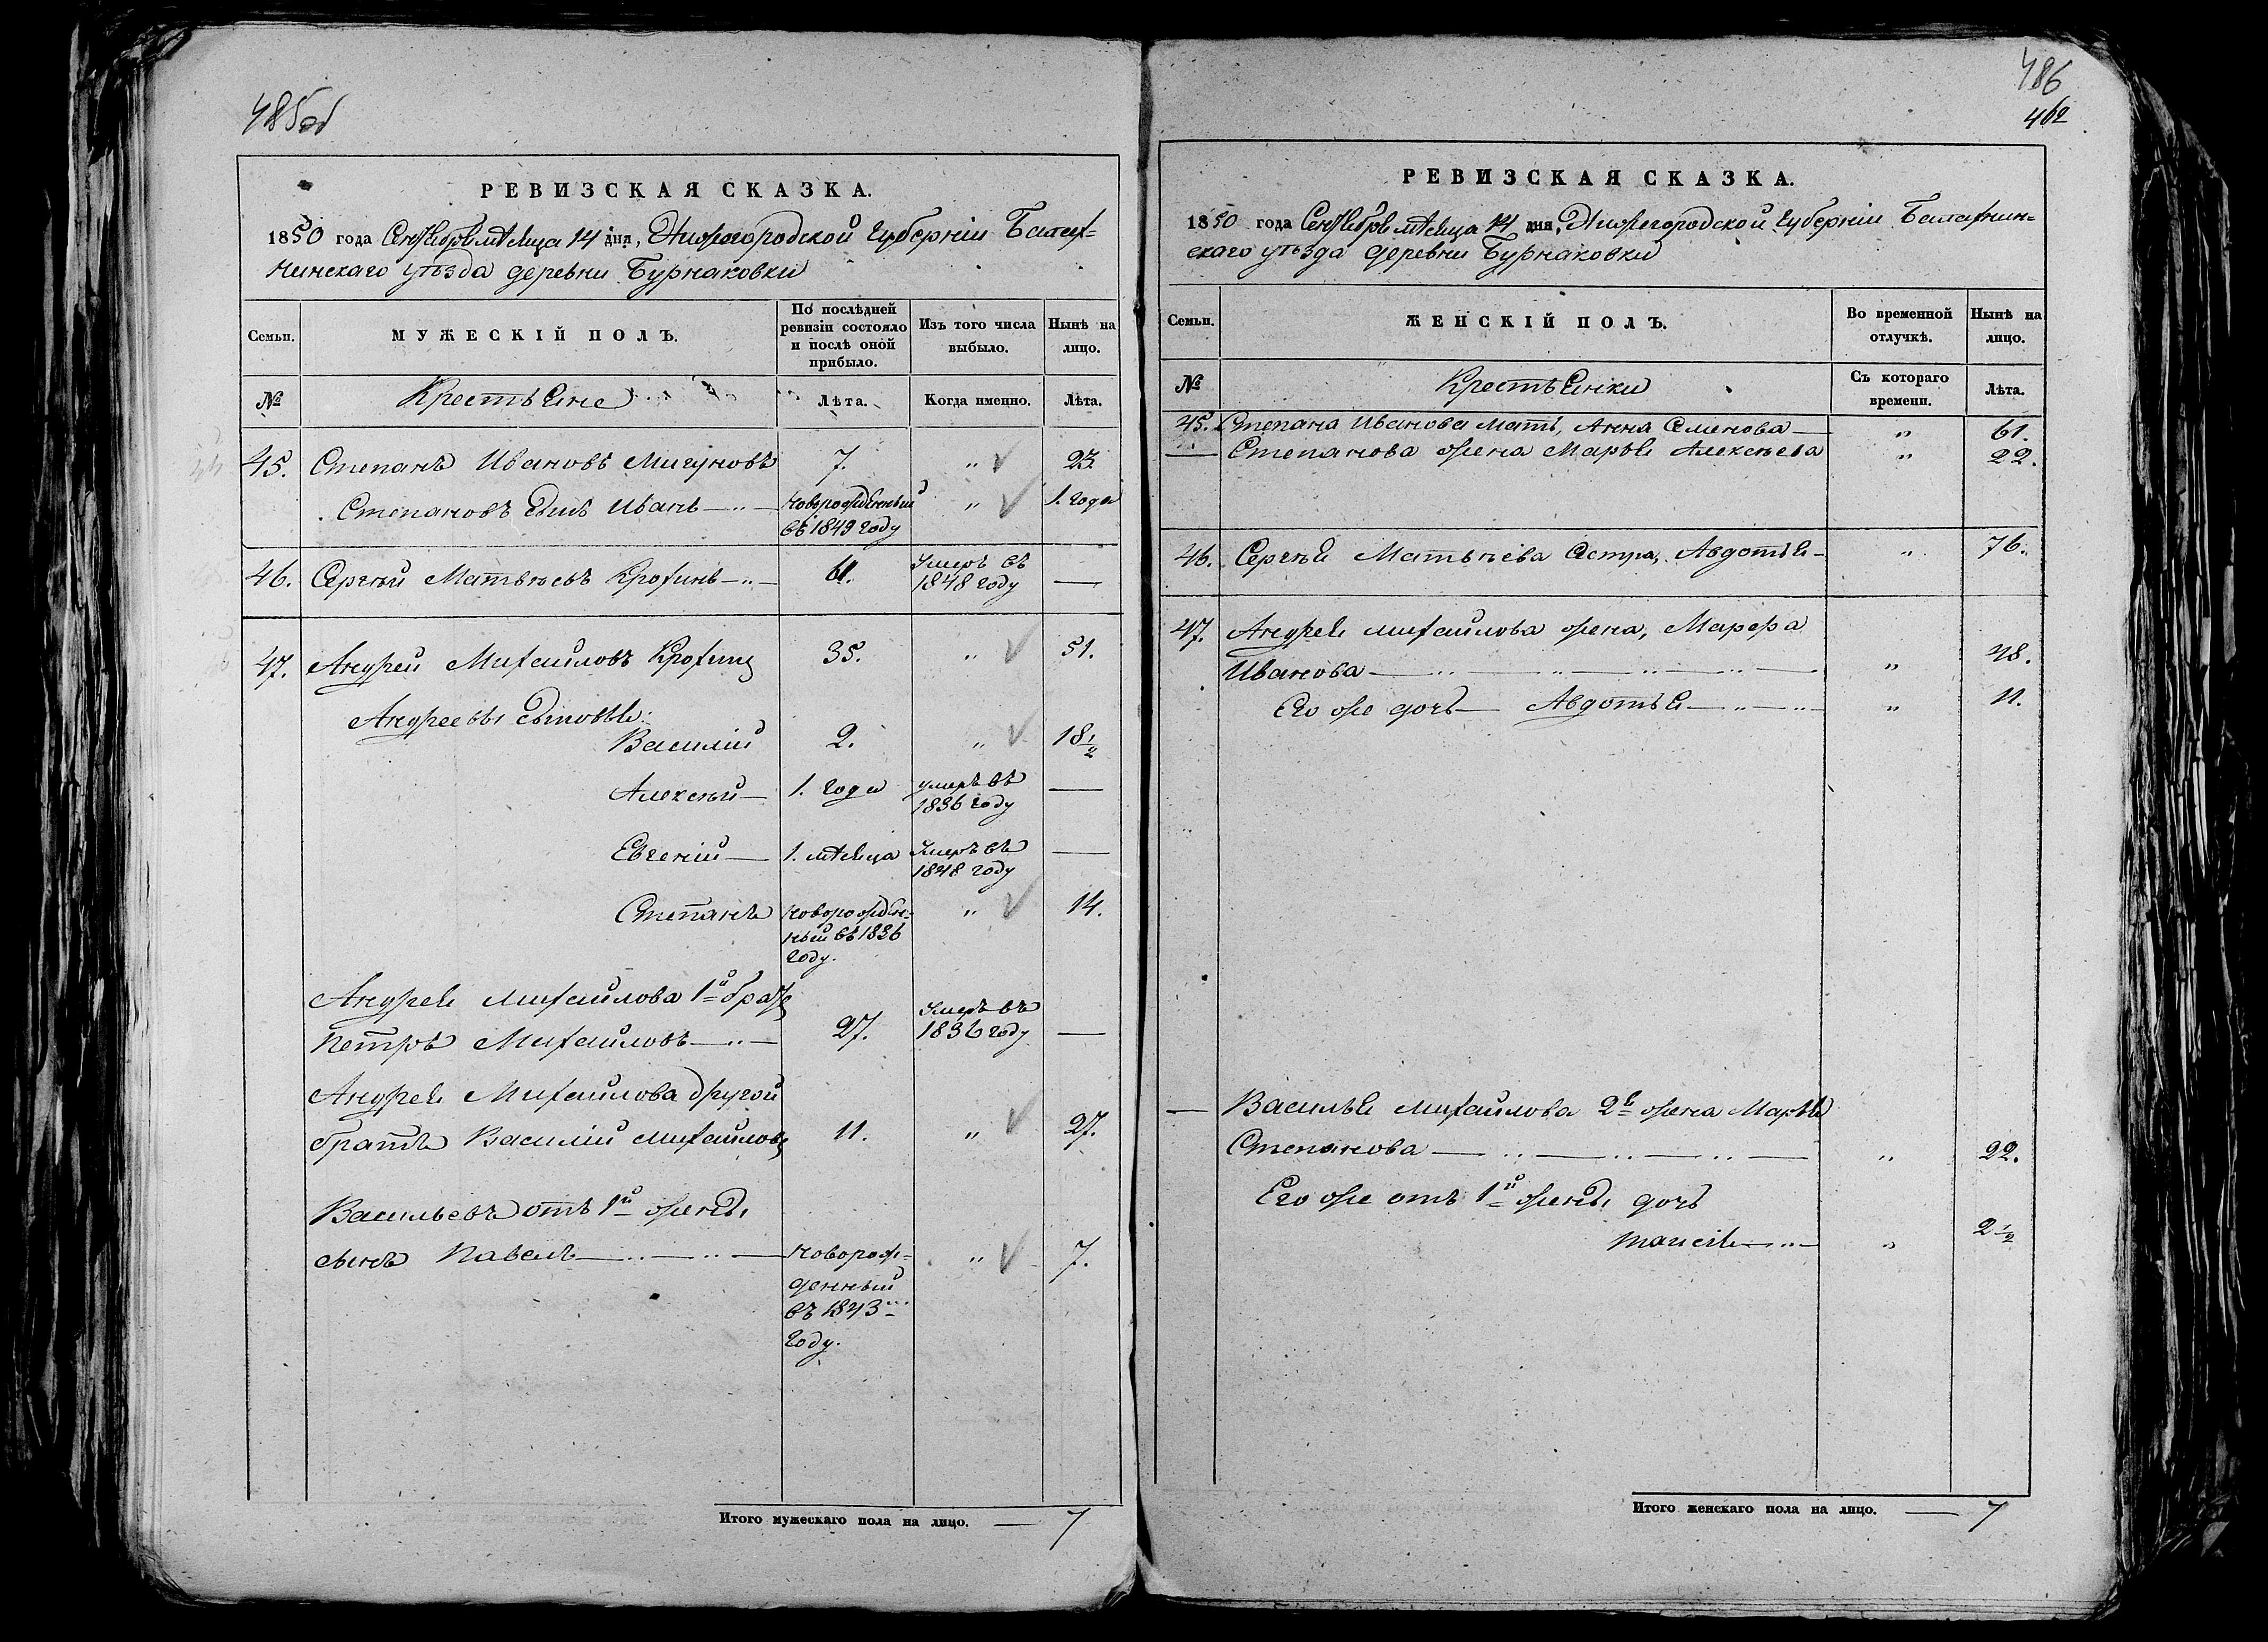 485об
РЕВИЗСКАЯ СКАЗКА.
1850 года Сентября мѣсяца 14 дня, Нижегородской Губерніи Балах-
нинскаго уѣзда деревни Бурнаковки
Семьи.
МУЖЕСКІЙ ПОЛЪ.
По послѣдней
ревизіи состояло
и послѣ оной
прибыло.
Изъ того числа
выбыло.
Нынѣ на
лицо.
№
Крестьяне
Лѣта.
Когда именно.
Лѣта.
45. Степанъ Ивановъ Мигуновъ 7. „ 23.
Степановъ сынъ Иванъ — новорожденный „ 1. года
въ 1849 году
46. Сергѣй Матвѣевъ Крохинъ — 61. Умеръ въ —
1848 году
47. Андрей Михайловъ Крохинъ 35. „ 51.
Андреевы сыновья:
Василій 2. „ 18 1/2
Алексѣй — 1. года умеръ въ —
1836 году
Евгеній — 1. мѣсяца Умеръ въ —
1848 году
Степанъ новорожден- „ 14.
ный въ 1836
году.
Андрея Михайлова 1й братъ
Петръ Михайловъ — 27. Умеръ въ —
1836 году
Андрея Михайлова другой
братъ Василій Михайловъ 11. „ 27.
Васильевъ отъ 1й жены
сынъ Павелъ — новорож- „ 7.
денный
въ 1843
году.
Итого мужескаго пола на лицо. — 7
486
462
РЕВИЗСКАЯ СКАЗКА.
1850 года Сентября мѣсяца 14 дня, Нижегородской Губерніи Балахнин-
скаго уѣзда деревни Бурнаковки
Семьи.
ЖЕНСКІЙ ПОЛЪ.
Во временной
отлучкѣ.
Нынѣ на
лицо.
№
Крестьянки
Съ котораго
времени.
Лѣта.
45. Степана Иванова мать, Анна Семенова — „ 61.
— Степанова жена Марья Алексѣева „ 22.
46. Сергѣя Матвѣева сестра, Авдотья — „ 76.
47. Андрея Михайлова жена, Марфа
Иванова — „ 48.
Его же дочь — Авдотья — „ 11.
— Василья Михайлова 2я жена Марья
Степанова — „ 22.
Его же отъ 1й жены дочь
— „ 2 1/2
Итого женскаго пола на лицо. — 7